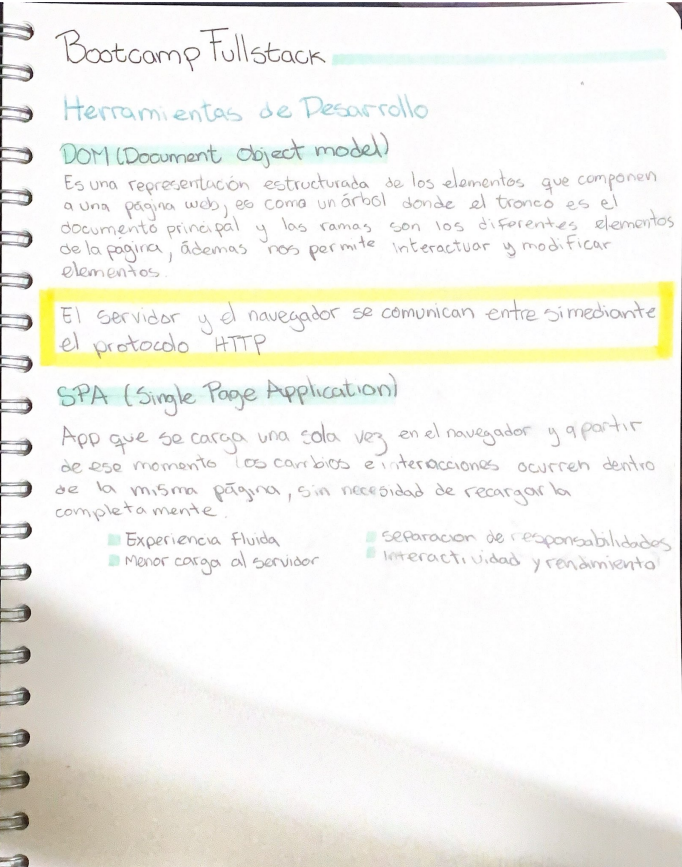 Bootcamp Fullstack
Herramientas de Desarrollo
DOM (Document Object model)
Es una representación estructurada de los elementos que componen
a una página web, es como un árbol donde el tronco es el
documento principal y las ramas son los diferentes elementos
de la pagina, ádemas nos permite interactuar y modificar
elementos.
El servidor y el navegador se comunican entre si mediante
el protocolo HTTP
SPA (Single Page Application)
App que se carga una sola vez en el navegador y a partir
de ese momento los cambios e interacciones ocurren dentro
de la misma página, sin necesidad de recargar la
completamente.
Experiencia fluida
Menor carga al servidor
separacion de responsabilidades
Interactividad y rendimiento